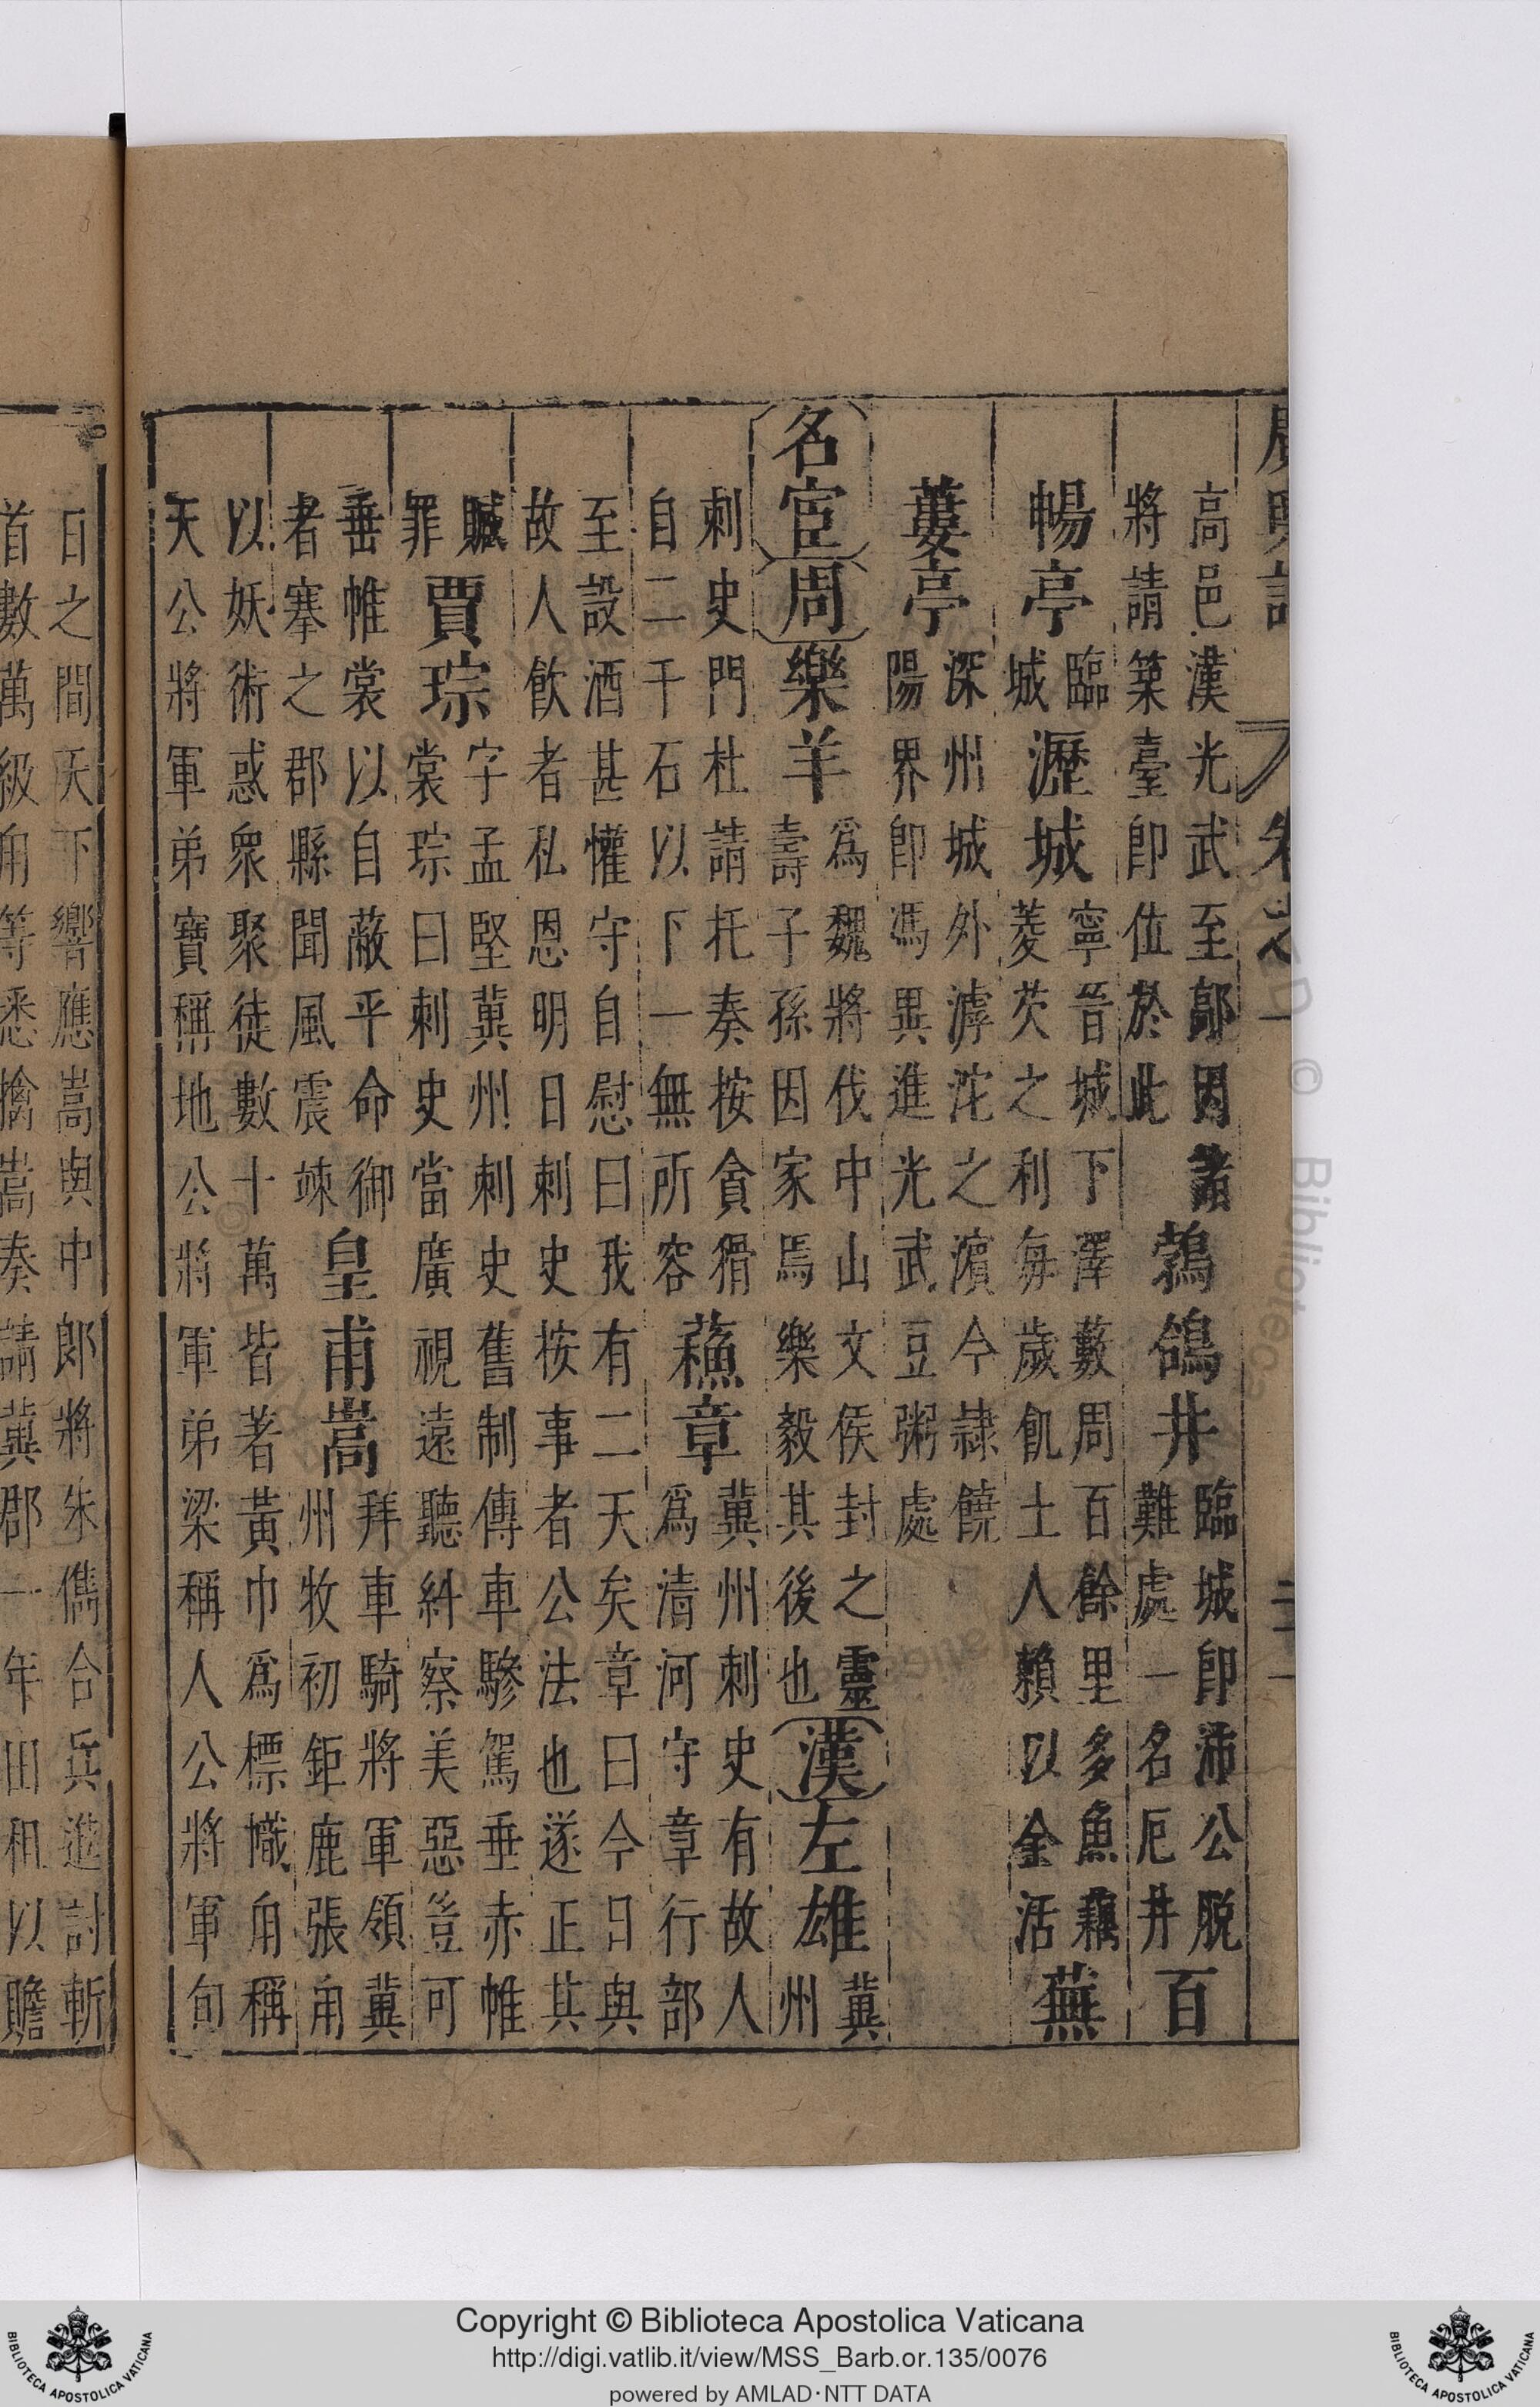 廣輿記 卷之一 二十一
高邑漢光武至鄗因諸將請築臺即位於此鵓鴿井臨城即沛公脫難處一名厄井百
暢亭臨城瀝城寧晉城下澤藪周百餘里多魚藕菱芡之利每歲飢土人賴以金活蕪
蔞亭深州城外滹沱之濱今隷饒陽界即馮異進光武豆粥處
名宦周樂羊爲魏將伐中山文侯封之靈壽子孫因家焉樂毅其後也漢左雄冀州
刺史門杜請托奏按貪猾自二千石以下一無所容蘓章冀州刺史有故人爲清河守章行部
至設酒甚懽守自慰曰我有二天矣章曰今日與故人飲者私恩明日刺史按事者公法也遂正其
贓罪賈琮字孟堅冀州刺史舊制傳車驂駕垂赤帷裳琮曰刺史當廣視遠聽糾察美惡豈可
垂帷裳以自蔽平命御者搴之郡縣聞風震竦皇甫嵩拜車騎將軍領冀州牧初鉅鹿張角
以妖術惑衆聚徒數十萬皆著黃巾爲標幟角稱天公將軍弟寶稱地公將軍弟梁稱人公將軍旬
日之間天下響應嵩與中郎將朱儁合兵進討斬
首數萬級角等悉擒嵩奏請冀郡一年田租以贍
Copyright © Biblioteca Apostolica Vaticana
http://digi.vatlib.it/view/MSS_Barb.or.135/0076
powered by AMLAD·NTT DATA
BIBLIOTECA APOSTOLICA VATICANA
BIBLIOTECA APOSTOLICA VATICANA